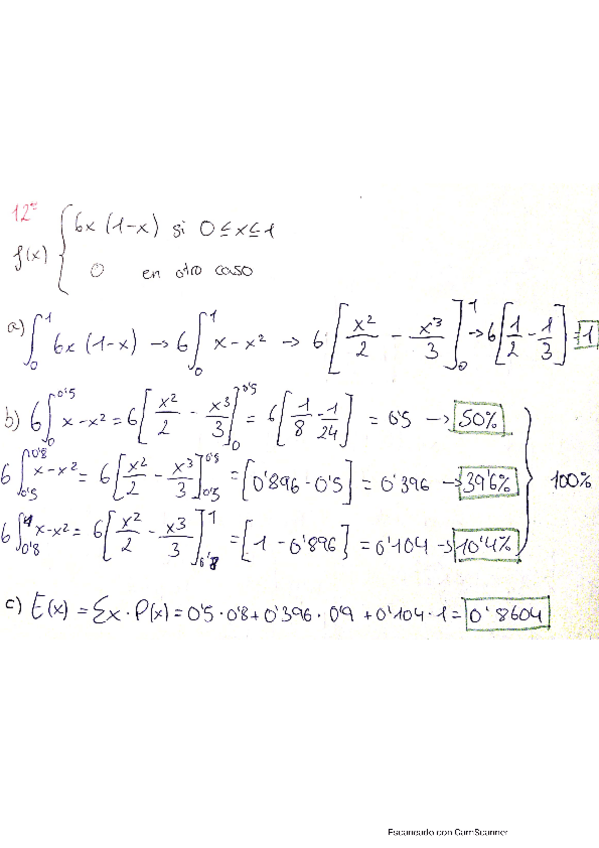 12º
f(x) { 6x (1-x) si 0 ≤ x ≤ 1
0 en otro caso
a) ∫₀¹ 6x (1-x) → 6 ∫₀¹ x - x² → 6 [x²/2 - x³/3]₀¹ → 6 [1/2 - 1/3] = 1
b) 6 ∫₀^0'5 x - x² = 6 [x²/2 - x³/3]₀^0'5 = 6 [1/8 - 1/24] = 0'5 → 50%
6 ∫_0'5^0'8 x - x² = 6 [x²/2 - x³/3]_0'5^0'8 = [0'896 - 0'5] = 0'396 → 39'6% } 100%
6 ∫_0'8^1 x - x² = 6 [x²/2 - x³/3]_0'8^1 = [1 - 0'896] = 0'104 → 10'4%
c) E(x) = Σx · P(x) = 0'5 · 0'8 + 0'396 · 0'9 + 0'104 · 1 = 0'8604
Escaneado con CamScanner